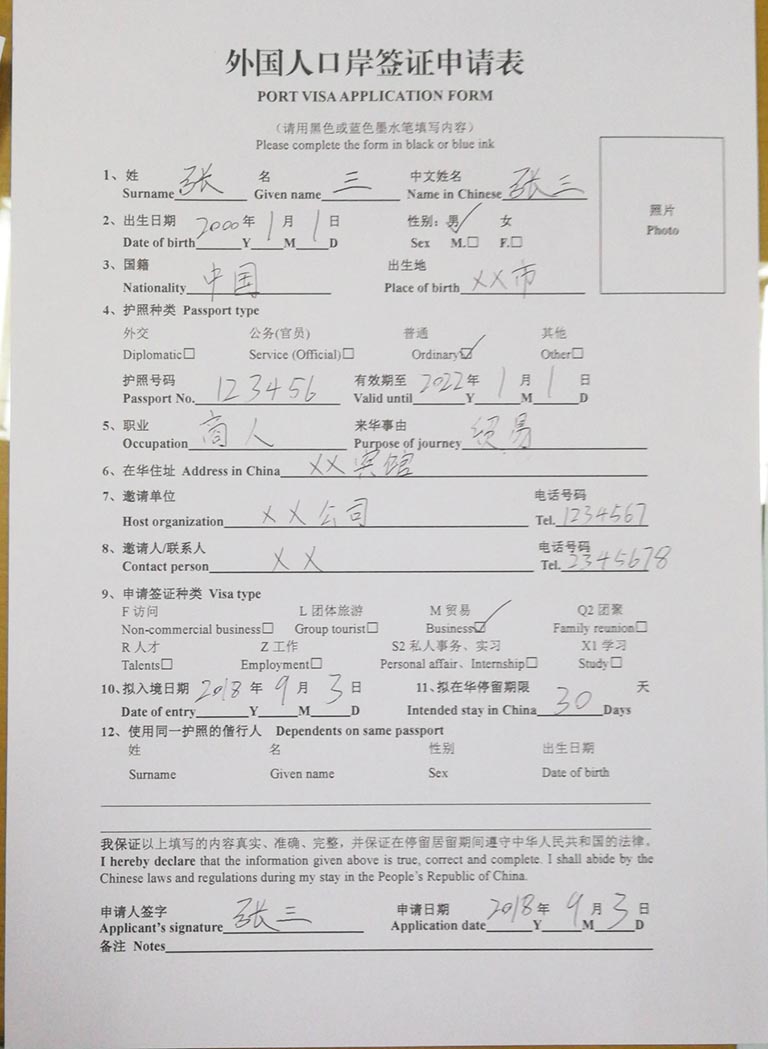 外国人口岸签证申请表
PORT VISA APPLICATION FORM
（请用黑色或蓝色墨水笔填写内容）
Please complete the form in black or blue ink
照片
Photo
1、姓 名 中文姓名
Surname 张 Given name 三 Name in Chinese 张三
2、出生日期 2000年 1月 1日 性别：男 女
Date of birth Y M D Sex M.□ F.□
3、国籍 出生地
Nationality 中国 Place of birth XX市
4、护照种类 Passport type
外交 公务(官员) 普通 其他
Diplomatic□ Service (Official)□ Ordinary☑ Other□
护照号码 有效期至 2022年 1月 1日
Passport No. 123456 Valid until Y M D
5、职业 来华事由
Occupation 商人 Purpose of journey 贸易
6、在华住址 Address in China XX宾馆
7、邀请单位 电话号码
Host organization XX公司 Tel. 1234567
8、邀请人/联系人 电话号码
Contact person XX Tel. 2345678
9、申请签证种类 Visa type
F 访问 L 团体旅游 M 贸易 Q2 团聚
Non-commercial business□ Group tourist□ Business☑ Family reunion□
R 人才 Z 工作 S2 私人事务、实习 X1 学习
Talents□ Employment□ Personal affair、Internship□ Study□
10、拟入境日期 2018年 9月 3日 11、拟在华停留期限 30 天
Date of entry Y M D Intended stay in China Days
12、使用同一护照的偕行人 Dependents on same passport
姓 名 性别 出生日期
Surname Given name Sex Date of birth
我保证以上填写的内容真实、准确、完整，并保证在停留居留期间遵守中华人民共和国的法律。
I hereby declare that the information given above is true, correct and complete. I shall abide by the
Chinese laws and regulations during my stay in the People's Republic of China.
申请人签字 申请日期 2018年 9月 3日
Applicant's signature 张三 Application date Y M D
备注 Notes